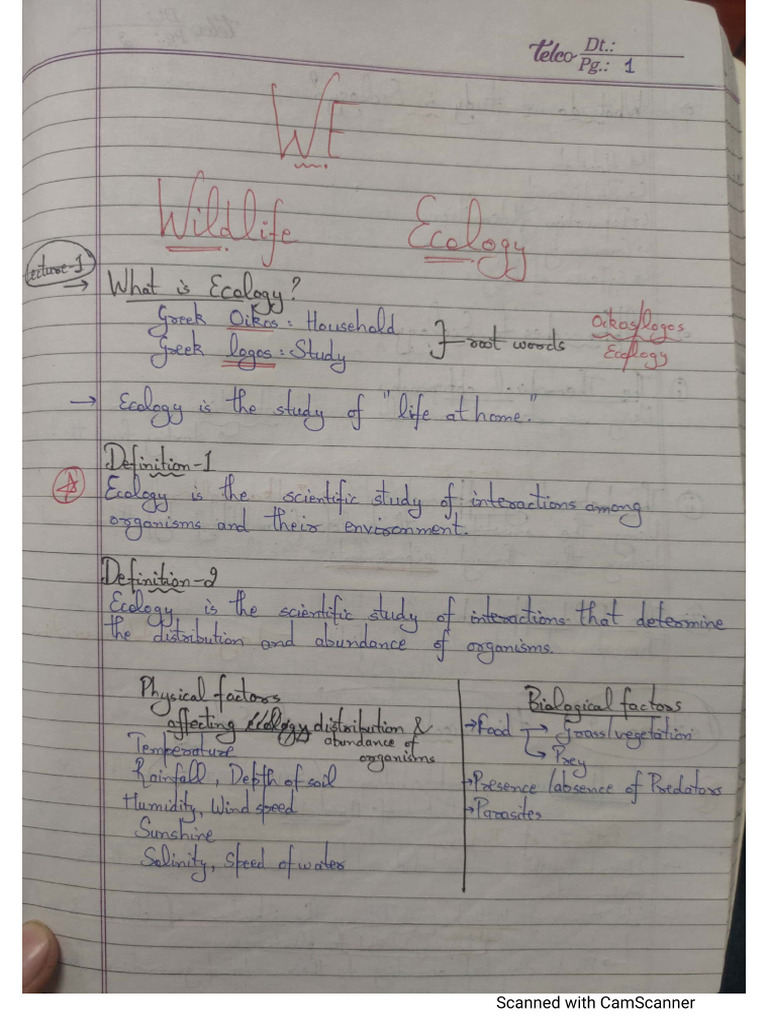 Telco Dt.:
Pg.: 1
WE
Wildlife Ecology
Lecture-1
→ What is Ecology?
Greek Oikos: Household
Greek logos: Study
root words
Oikos/logos
Ecology
→ Ecology is the study of "life at home."
Definition-1
Ecology is the scientific study of interactions among
organisms and their environment.
Definition-2
Ecology is the scientific study of interactions that determine
the distribution and abundance of organisms.
Physical factors
affecting distribution &
abundance of
organisms
Temperature
Rainfall, Depth of soil
Humidity, Wind speed
Sunshine
Salinity, Speed of water
Biological factors
→ Food → Grass/vegetation
↳ Prey
→ Presence/absence of Predators
→ Parasites
Scanned with CamScanner